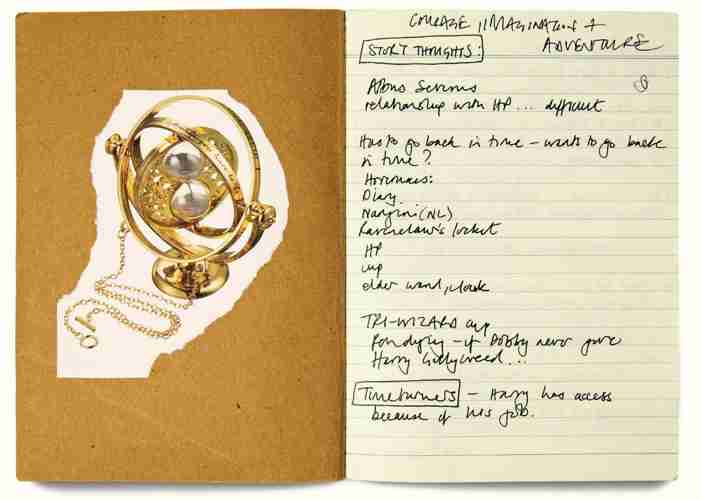 COURAGE, IMAGINATION +
ADVENTURE
STORY THOUGHTS:
Albus Severus
relationship with HP... difficult
Has to go back in time – wants to go back
in time?
Horcruxes:
Diary
Nagini (NL)
Ravenclaw's locket
HP
cup
elder wand, cloak
TRI-WIZARD cup
– if Dobby never gave
Harry Gillyweed...
Timeturners – Harry has access
because of his job.